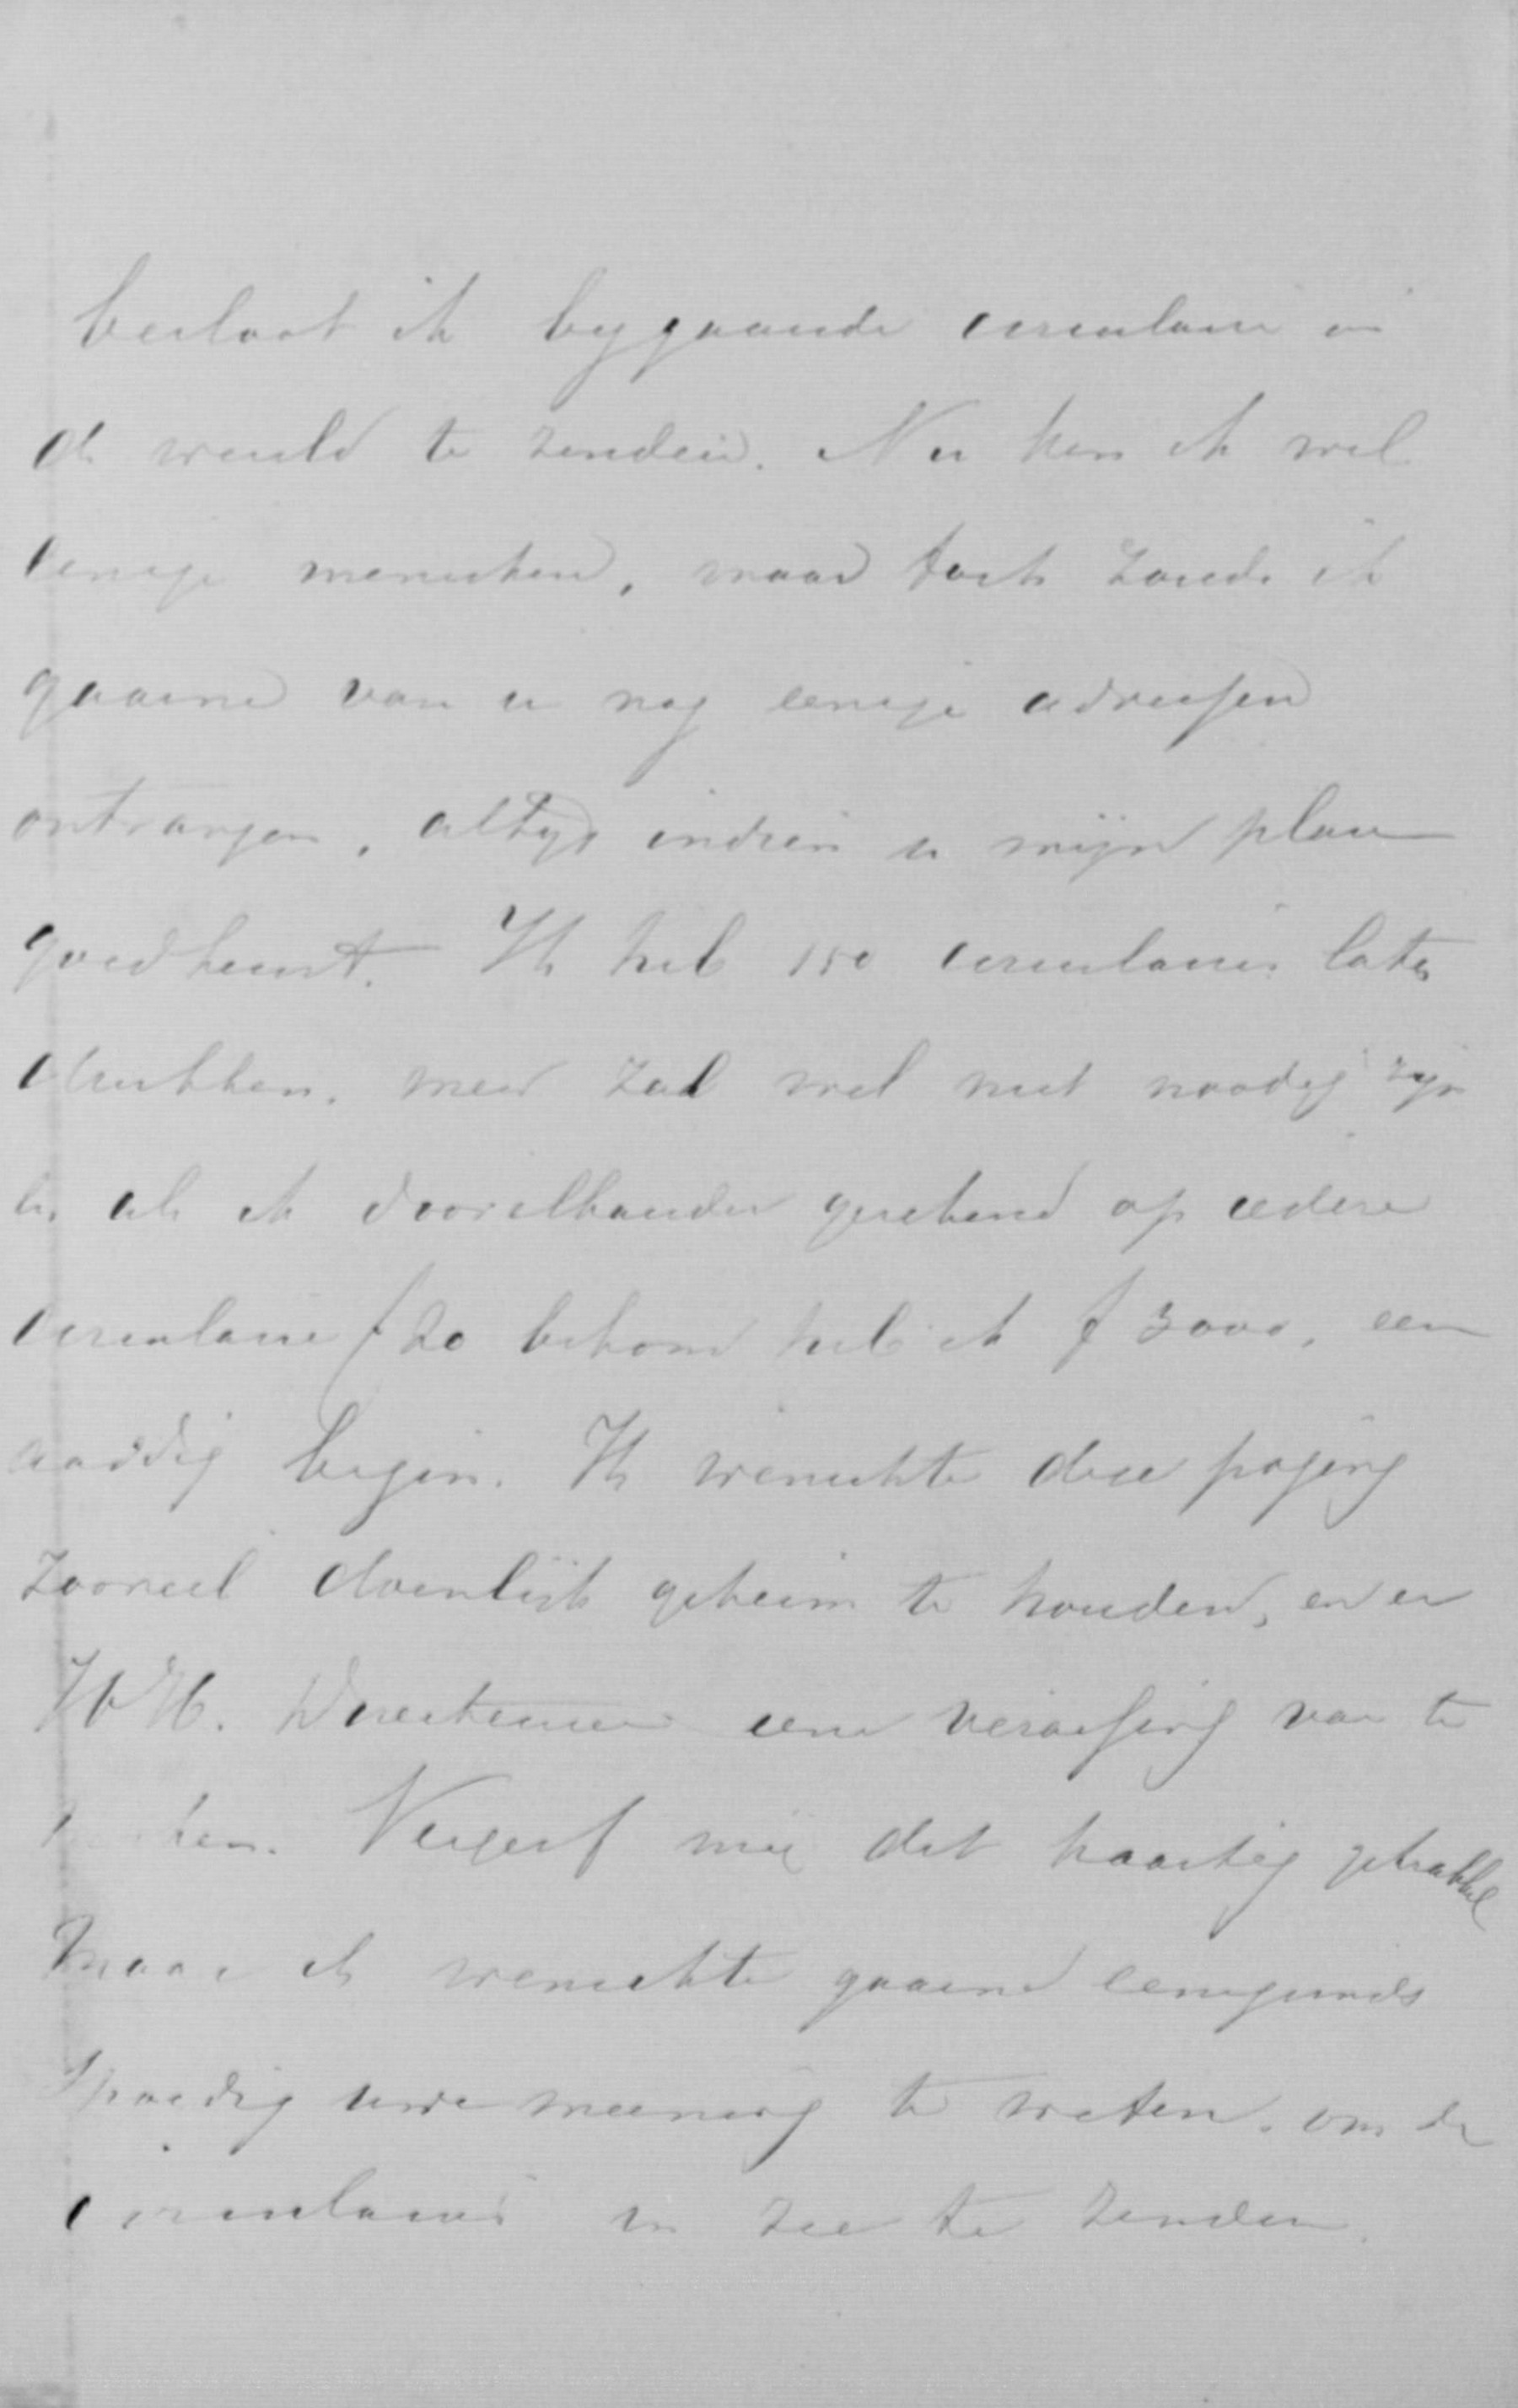 besloot ik bygaande circulaire in
de wereld te zenden. Nu ken ik wel
eenige menschen, maar toch zoude ik
gaarne van u nog eenige adressen
ontvangen, altyd indien u mijn plan
goedkeurt. Ik heb 150 circulaires laten
drukken, meer zal wel niet noodig zijn
als ik doorelkander gerekend op iedere
circulaire f 20 bekom heb ik f 3000, een
aardig begin. Ik wenschte deze poging
zooveel doenlijk geheim te houden, en er
HH. Directeuren eene verrassing van te
Vergeef mij dit haastig gekrabbel
maar ik wenschte gaarne eenigzinds
spoedig uwe meening te weten, om de
circulaires in zee te zenden.